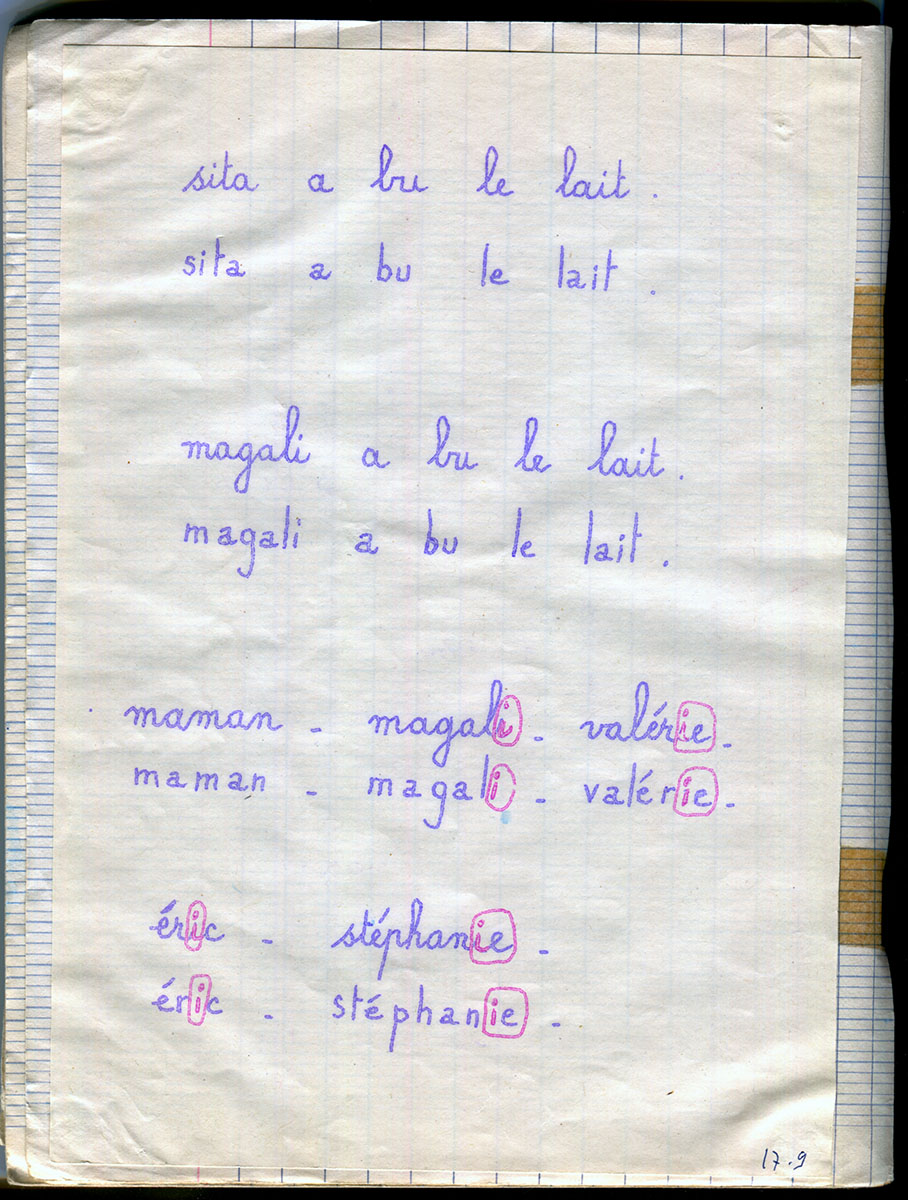 sita a bu le lait.
sita a bu le lait.
magali a bu le lait.
magali a bu le lait.
maman - magali - valérie -
maman - magali - valérie -
éric - stéphanie -
éric - stéphanie -
17.9